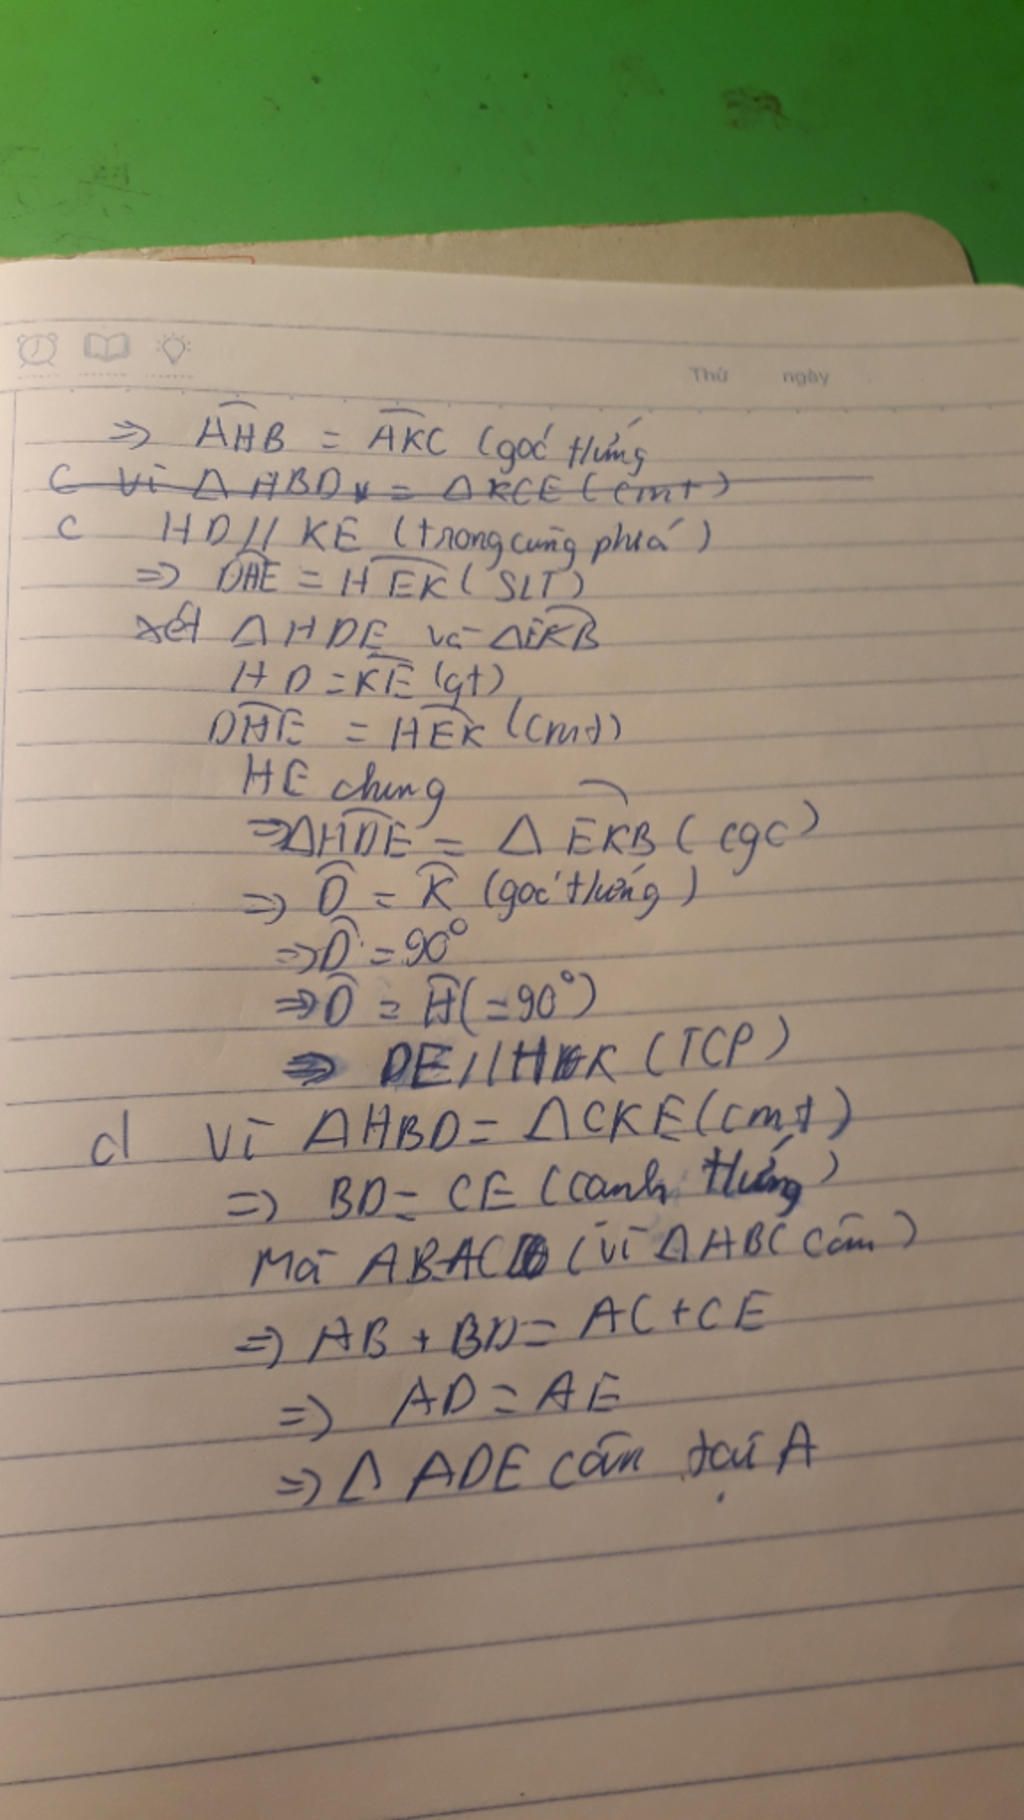 Thứ ngày
⇒ AHB = AKC (góc tứng
C Vì Δ HBD = Δ KCE (cmt)
C HD // KE (trong cùng phía)
⇒ DHE = HEK (SLT)
xét Δ HDE và ΔEKB
HD = KE (gt)
DHE = HEK (cmt)
HE chung
⇒ ΔHDE = Δ EKB (cgc)
⇒ D = K (góc tứng)
⇒ D = 90°
⇒ D = H (= 90°)
⇒ DE // HK (TCP)
d Vì ΔHBD = ΔCKE (cmt)
⇒ BD = CE (cạnh tứng)
Mà AB AC (vì ΔHBC cân)
⇒ AB + BD = AC + CE
⇒ AD = AE
⇒ Δ ADE cân tại A